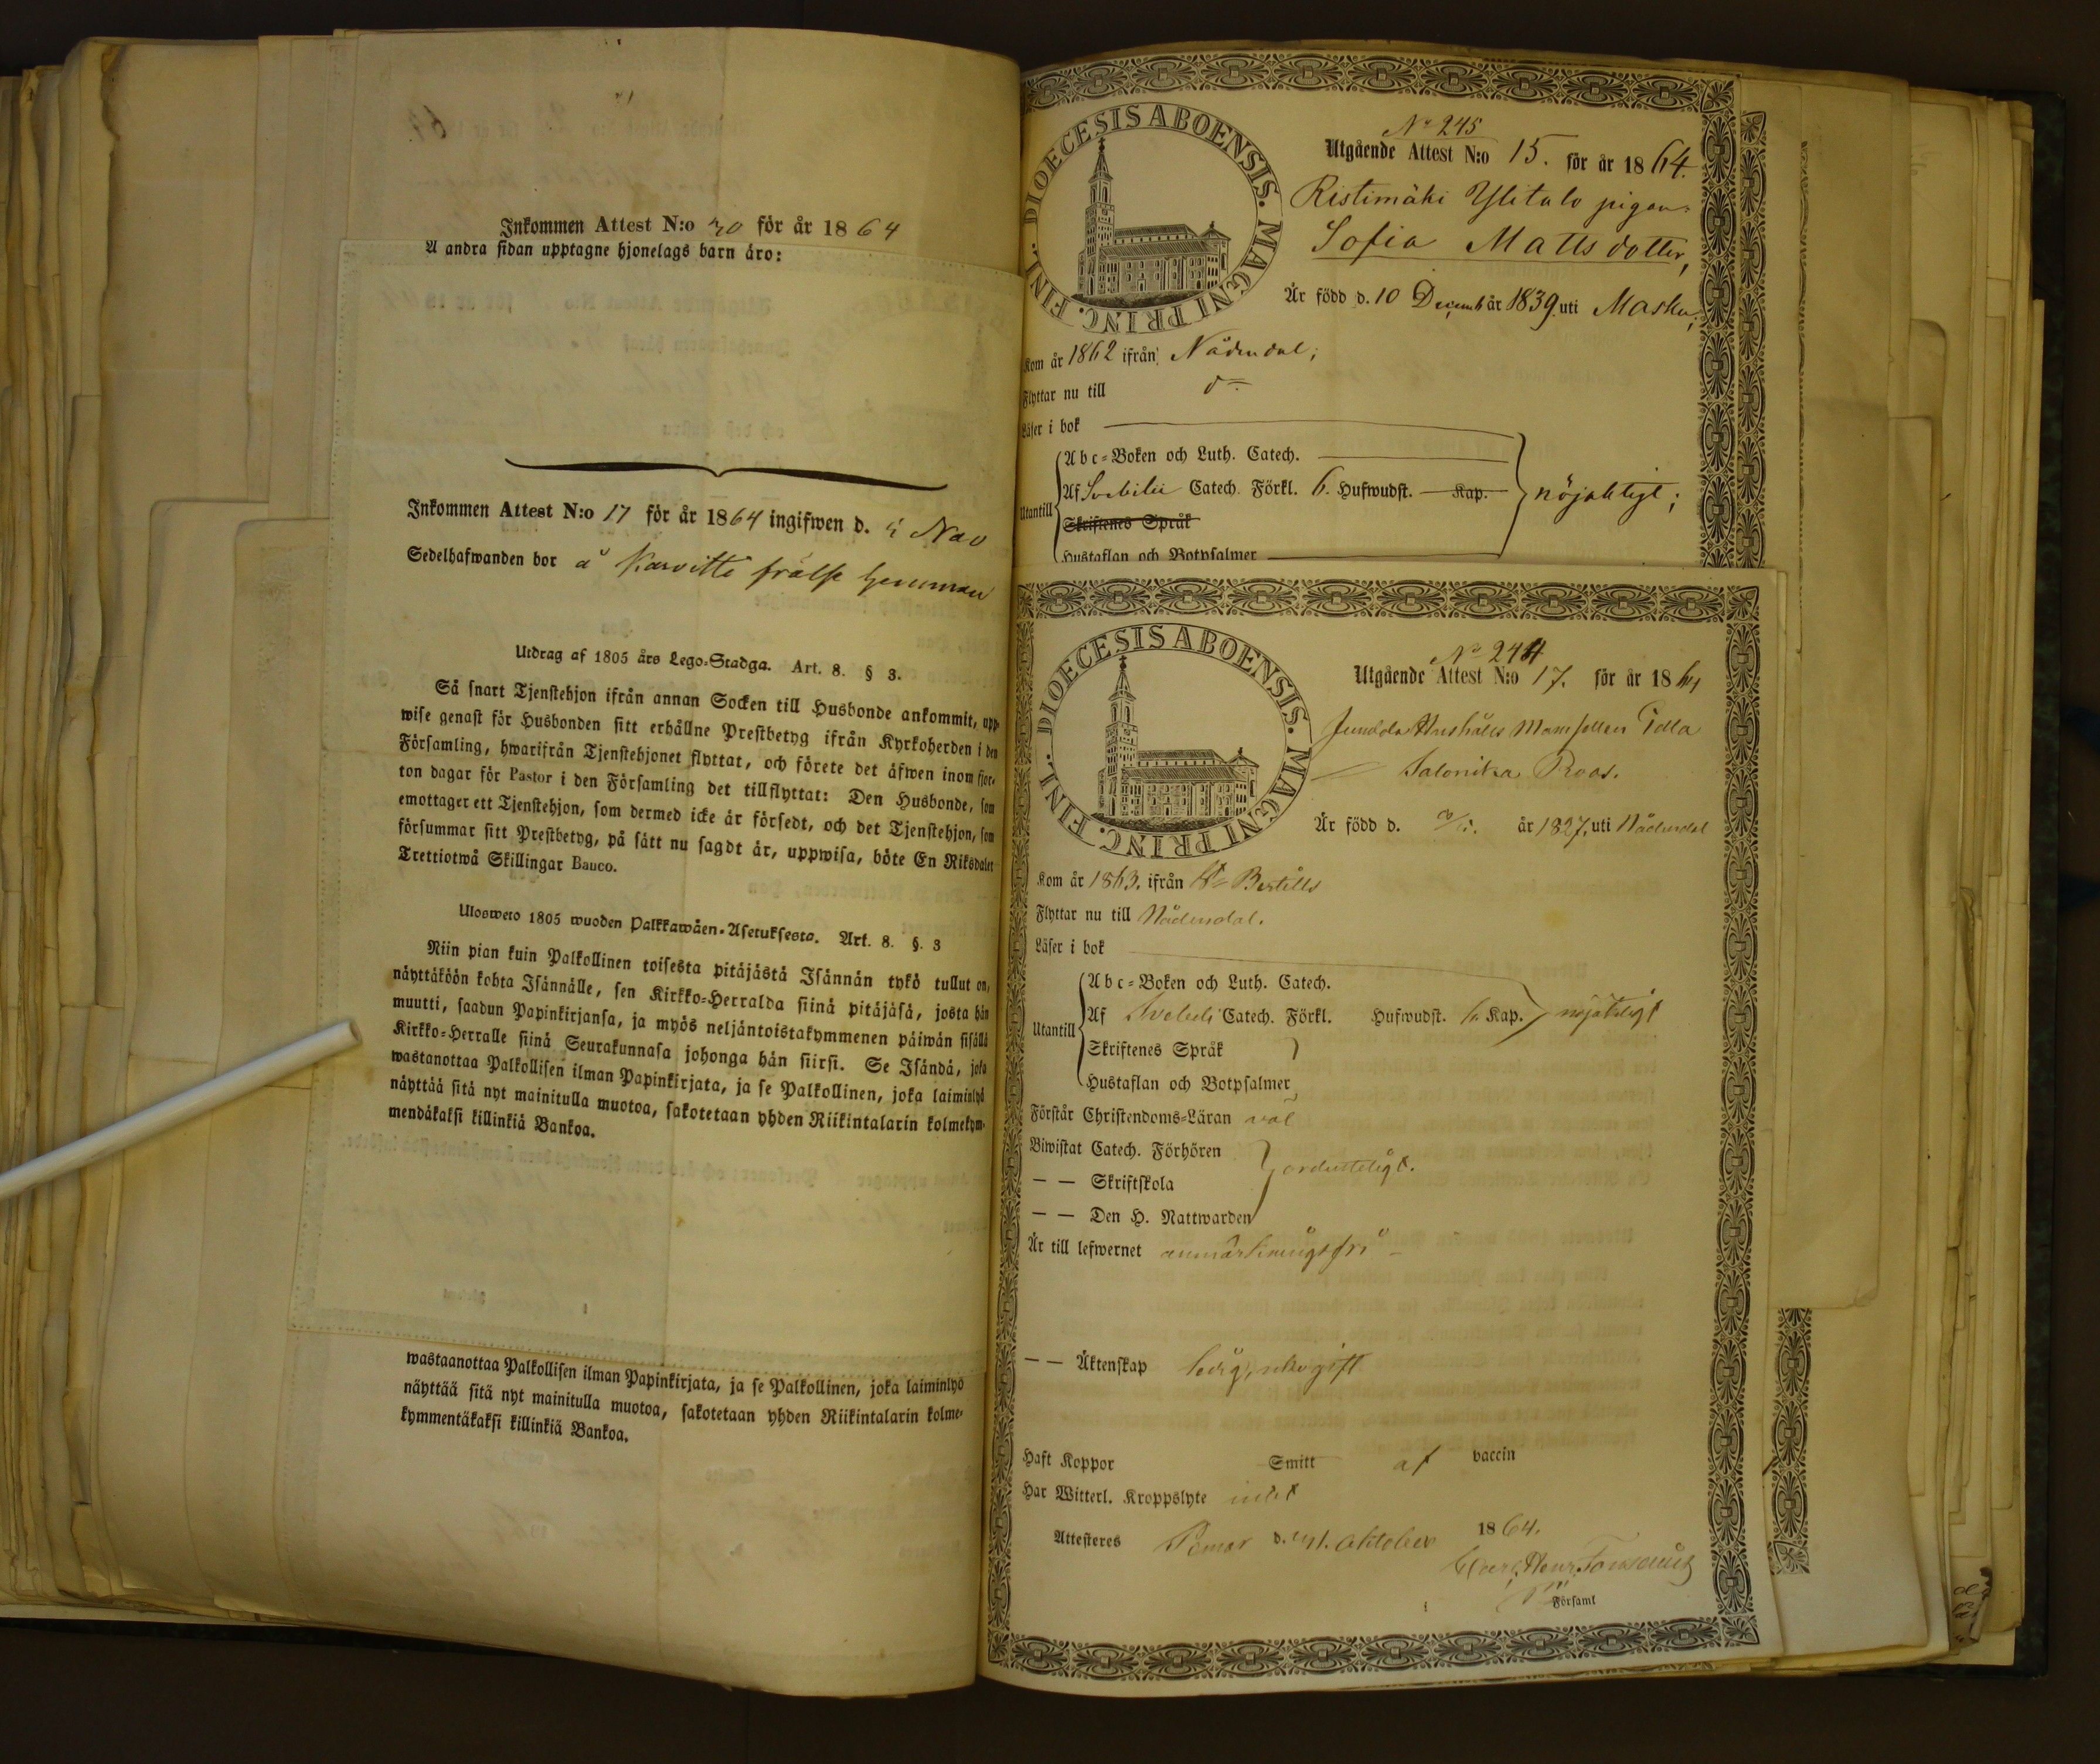 Inkommen Attest N:o 30 för år 1864
Å andra sidan upptagne hjonelags barn äro:
Inkommen Attest N:o 17 för år 1864 ingifwen d. Nov
Sedelhafwanden bor å Karvitti frälse hemman
Utdrag af 1805 års Lego-Stadga. Art. 8. § 3.
Så snart Tjenstehjon ifrån annan Socken till Husbonde ankommit, upp-
wise genast för Husbonden sitt erhållne Prestbetyg ifrån Kyrkoherden i den
Församling, hwarifrån Tjenstehjonet flyttat, och förete det äfwen inom fjor-
ton dagar för Pastor i den Församling det tillflyttat: Den Husbonde, som
emottager ett Tjenstehjon, som dermed icke är försedt, och det Tjenstehjon, som
försummar sitt Prestbetyg, på sätt nu sagdt är, uppwisa, böte En Riksdaler
Trettiotwå Skillingar Banco.
Uloswero 1805 wuoden Palkkawäen-Asetuksesta. Art. 8. §. 3
Niin pian kuin Palkollinen toisesta pitäjästä Isännän tykö tullut on,
näyttäköön kohta Isännälle, sen Kirkko-Herralda siinä pitäjäsä, josta hän
muutti, saadun Papinkirjansa, ja myös neljäntoistakymmenen päiwän sisällä
Kirkko-Herralle siinä Seurakunnasa johonga hän siirsi. Se Isändä, joka
wastanottaa Palkollisen ilman Papinkirjata, ja se Palkollinen, joka laiminlyö
näyttää sitä nyt mainitulla muotoa, sakotetaan yhden Riikintalarin kolmekym-
mendäkaksi killinkiä Bankoa.
wastaanottaa Palkollisen ilman Papinkirjata, ja se Palkollinen, joka laiminlyö
näyttää sitä nyt mainitulla muotoa, sakotetaan yhden Riikintalarin kolme-
kymmentäkaksi killinkiä Bankoa.
DIOECESIS ABOENSIS. MAGNI PRINC. FINL.
No 245
Utgående Attest N:o 15. för år 1864.
Ristimäki Ylitalo pigan
Sofia Mattsdotter,
Är född d. 10 Decemb år 1839 uti Masku;
Kom år 1862 ifrån Nådendal;
Flyttar nu till do
Läser i bok
Abc-Boken och Luth. Catech.
Utantill Af Svebilii Catech. Förkl. 6. Hufwudst. Kap. nöjaktigt;
Skriftenes Språk
Hustaflan och Botpsalmer
DIOECESIS ABOENSIS. MAGNI PRINC. FINL.
No 244
Utgående Attest N:o 17. för år 1864
Junnola Hushålls Mamsellen Edla
Salonika Roos.
Är född d. år 1827, uti Nådendal
Kom år 1863. ifrån St Bertills
Flyttar nu till Nådendal.
Läser i bok
Abc-Boken och Luth. Catech.
Utantill Af Svebelii Catech. Förkl. Hufwudst. 6. Kap. nöjaktigt
Skriftenes Språk
Hustaflan och Botpsalmer
Förstår Christendoms-Läran väl
Biwistat Catech. Förhören
— — Skriftskola ordenteligt.
— — Den H. Nattwarden
Är till lefwernet anmärkningsfri
— — Äktenskap ledig, ogift
Haft Koppor Smitt af vaccin
Har Witterl. Kroppslyte intet
Attesteres Pemar d. Oktober 1864.
Carl Henr.
Församl